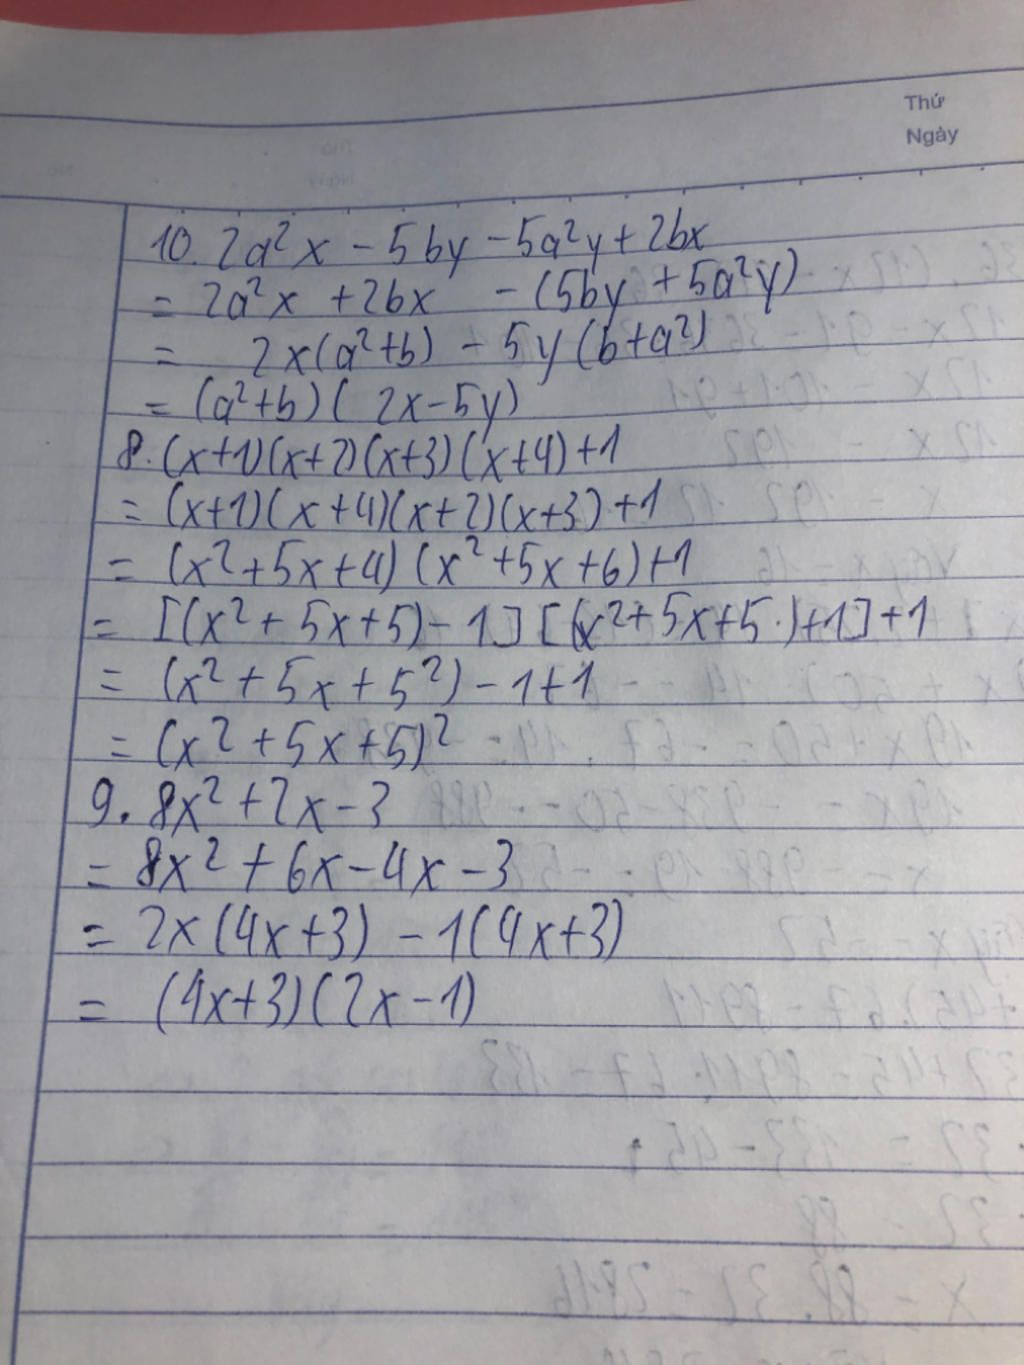 Thứ
Ngày
10. 2a²x - 5by - 5a²y + 2bx
= 2a²x + 2bx - (5by + 5a²y)
= 2x(a²+b) - 5y(b+a²)
= (a²+b)(2x-5y)
8. (x+1)(x+2)(x+3)(x+4)+1
= (x+1)(x+4)(x+2)(x+3)+1
= (x²+5x+4)(x²+5x+6)+1
= [(x²+5x+5)-1][(x²+5x+5)+1]+1
= (x²+5x+5²)-1+1
= (x²+5x+5)²
9. 8x²+2x-3
= 8x²+6x-4x-3
= 2x(4x+3)-1(4x+3)
= (4x+3)(2x-1)